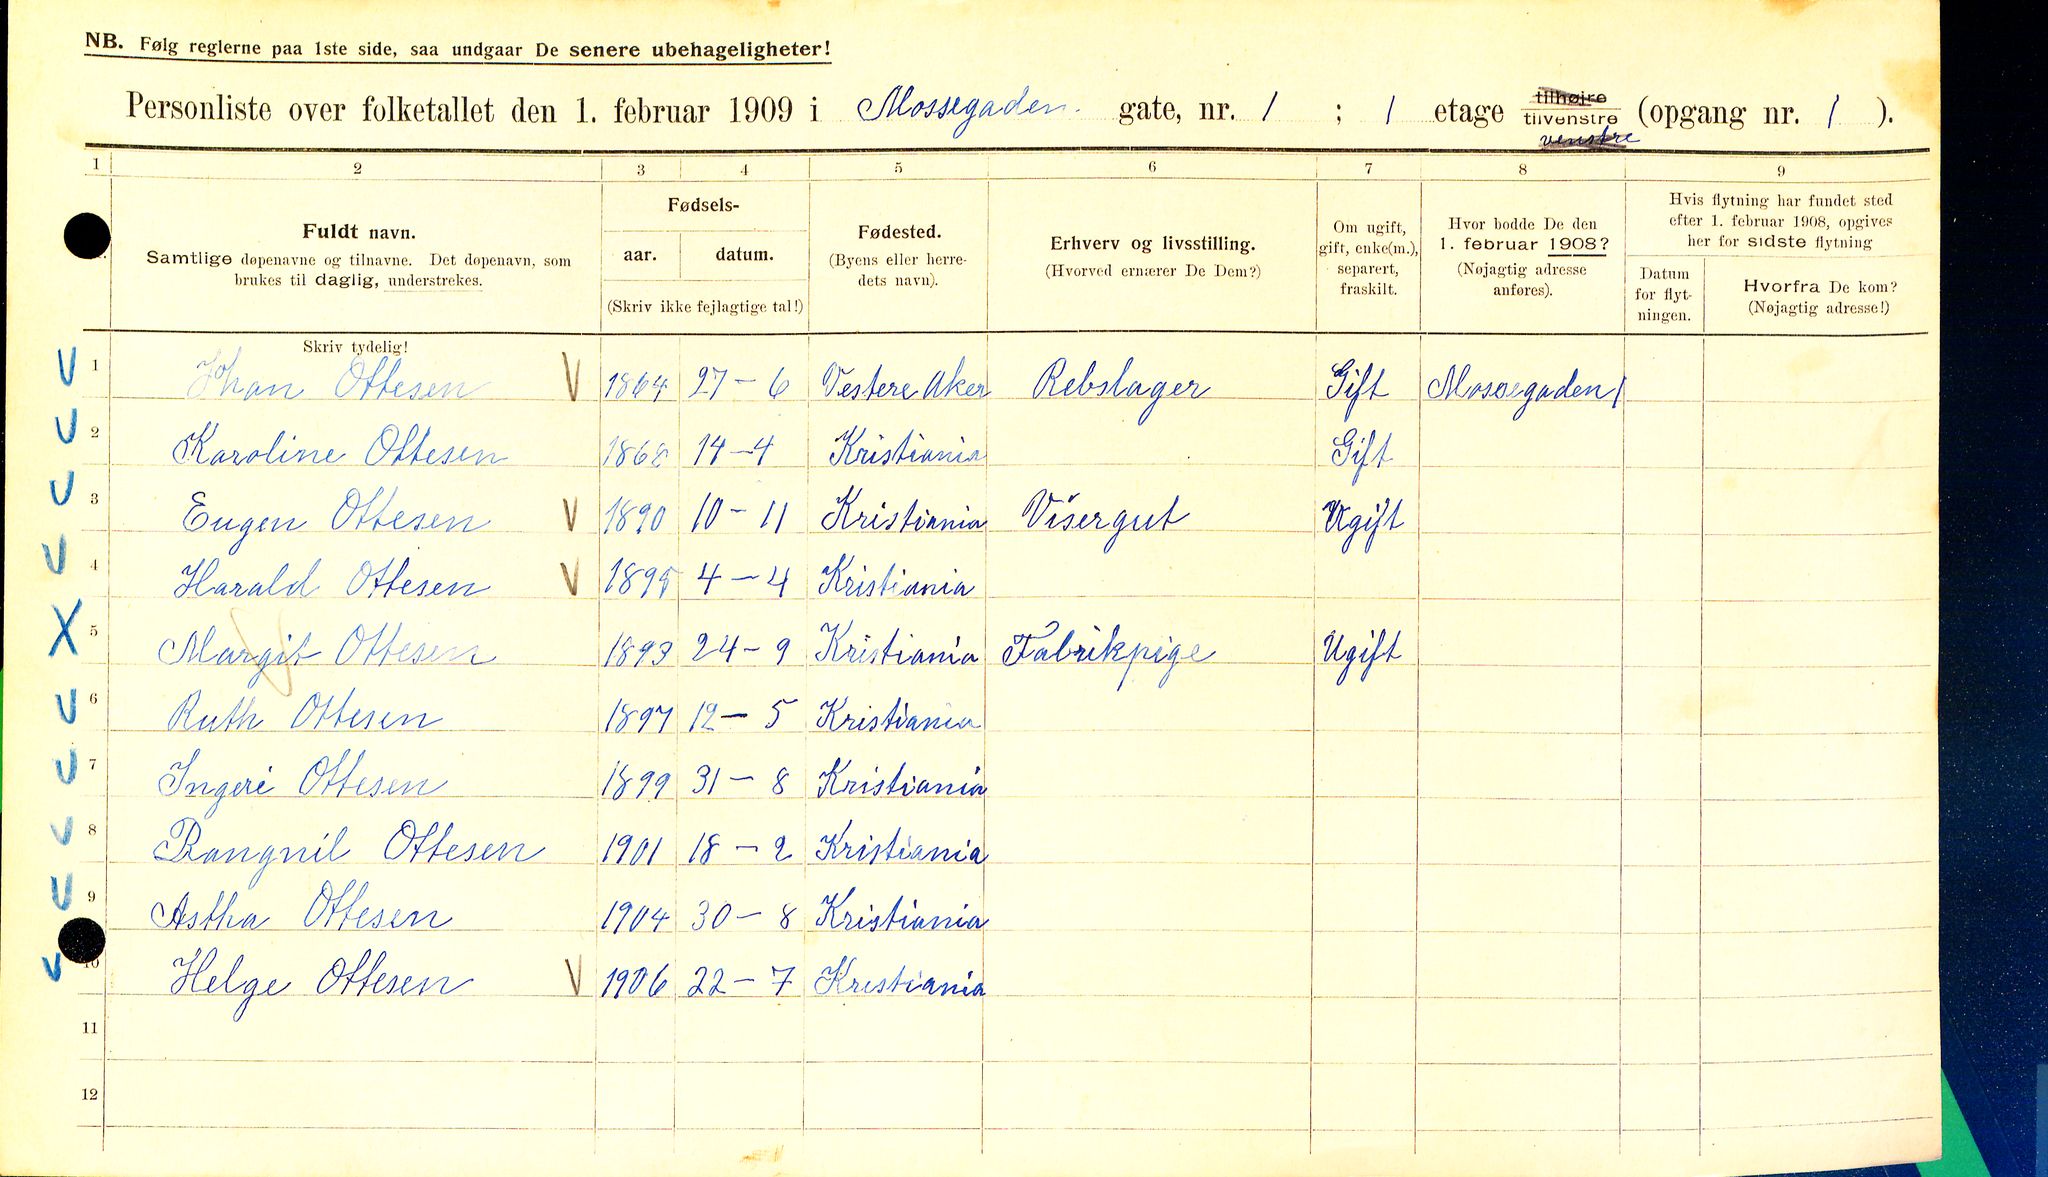 NB. Følg reglerne paa 1ste side, saa undgaar De senere ubehageligheter!
Personliste over folketallet den 1. februar 1909 i Mossegaden gate, nr. 1 ; 1 etage tilhøjre tilvenstre (opgang nr. 1 ).
venstre
1 2 3 4 5 6 7 8 9
Fuldt navn.
Samtlige døpenavne og tilnavne. Det døpenavn, som
brukes til daglig, understrekes.
Fødsels-
aar. datum.
(Skriv ikke fejlagtige tal!)
Fødested.
(Byens eller herre-
dets navn).
Erhverv og livsstilling.
(Hvorved ernærer De Dem?)
Om ugift,
gift, enke(m.),
separert,
fraskilt.
Hvor bodde De den
1. februar 1908?
(Nøjagtig adresse
anføres).
Hvis flytning har fundet sted
efter 1. februar 1908, opgives
her for sidste flytning
Datum
for flyt-
ningen.
Hvorfra De kom?
(Nøjagtig adresse!)
Skriv tydelig!
1 Johan Ottesen 1864 27-6 Vestere Aker Rebslager Gift Mossegaden 1
2 Karoline Ottesen 14-4 Kristiania Gift
3 Eugen Ottesen 1890 10-11 Kristiania Visergut Ugift
4 Harald Ottesen 1895 4-4 Kristiania
5 Margit Ottesen 1893 24-9 Kristiania Fabrikpige Ugift
6 Ruth Ottesen 1897 12-5 Kristiania
7 Ingeri Ottesen 1899 31-8 Kristiania
8 Rangnil Ottesen 1901 18-2 Kristiania
9 Astha Ottesen 1904 30-8 Kristiania
10 Helge Ottesen 1906 22-7 Kristiania
11
12